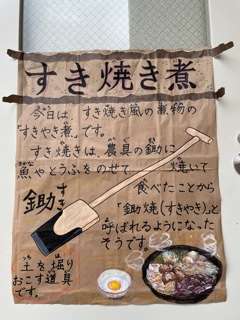 すき焼き煮
今日は、すき焼き風の煮物の
「すきやき煮」です。
すき焼きは、農具の鋤に
魚やとうふをのせて 焼いて
食べたことから
「鋤焼(すきやき)」と
呼ばれるようになった
そうです。
鋤 すき
土を掘り
おこす道具
です。